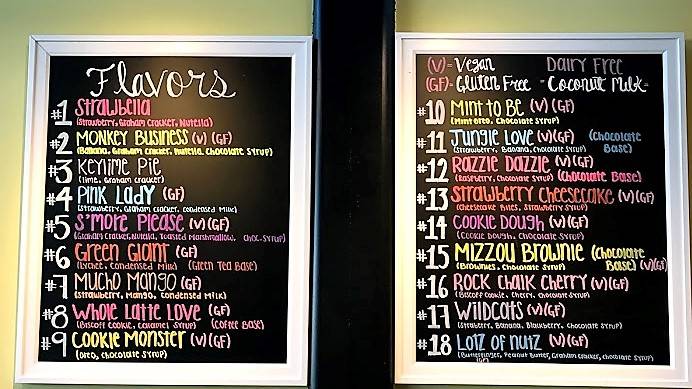 Flavors
#1 Strawbella
(Strawberry, Graham Cracker, Nutella)
#2 Monkey Business (V) (GF)
(Banana, Graham Cracker, Nutella, Chocolate Syrup)
#3 Keylime Pie
(Lime, Graham Cracker)
#4 Pink Lady (GF)
(Strawberry, Graham Cracker, Condensed Milk)
#5 S'more Please (V) (GF)
(Graham Cracker, Nutella, Toasted Marshmallow, Choc. Syrup)
#6 Green Giant (GF)
(Lychee, Condensed Milk) (Green Tea Base)
#7 Mucho Mango (GF)
(Strawberry, Mango, Condensed Milk)
#8 Whole Latte Love (GF)
(Biscoff Cookie, Caramel Syrup) (Coffee Base)
#9 Cookie Monster (V) (GF)
(Oreo, Chocolate Syrup)
(V) = Vegan Dairy Free
(GF) = Gluten Free - Coconut Milk -
#10 Mint to Be (V) (GF)
(Mint Oreo, Chocolate Syrup)
#11 Jungle Love (V) (GF) (Chocolate Base)
(Strawberry, Banana, Chocolate Syrup)
#12 Razzle Dazzle (V) (GF)
(Raspberry, Chocolate Syrup) (Chocolate Base)
#13 Strawberry Cheesecake (V) (GF)
(Cheesecake Bites, Strawberry Syrup)
#14 Cookie Dough (V) (GF)
(Cookie Dough, Chocolate Syrup)
#15 Mizzou Brownie (Chocolate Base) (V) (GF)
(Brownies, Chocolate Syrup)
#16 Rock Chalk Cherry (V) (GF)
(Biscoff Cookie, Cherry, Chocolate Syrup)
#17 Wildcats (V) (GF)
(Strawberry, Banana, Blackberry, Chocolate Syrup)
#18 Lotz of Nutz (V) (GF)
(Butterfinger, Peanut Butter, Graham Cracker, Chocolate Syrup)